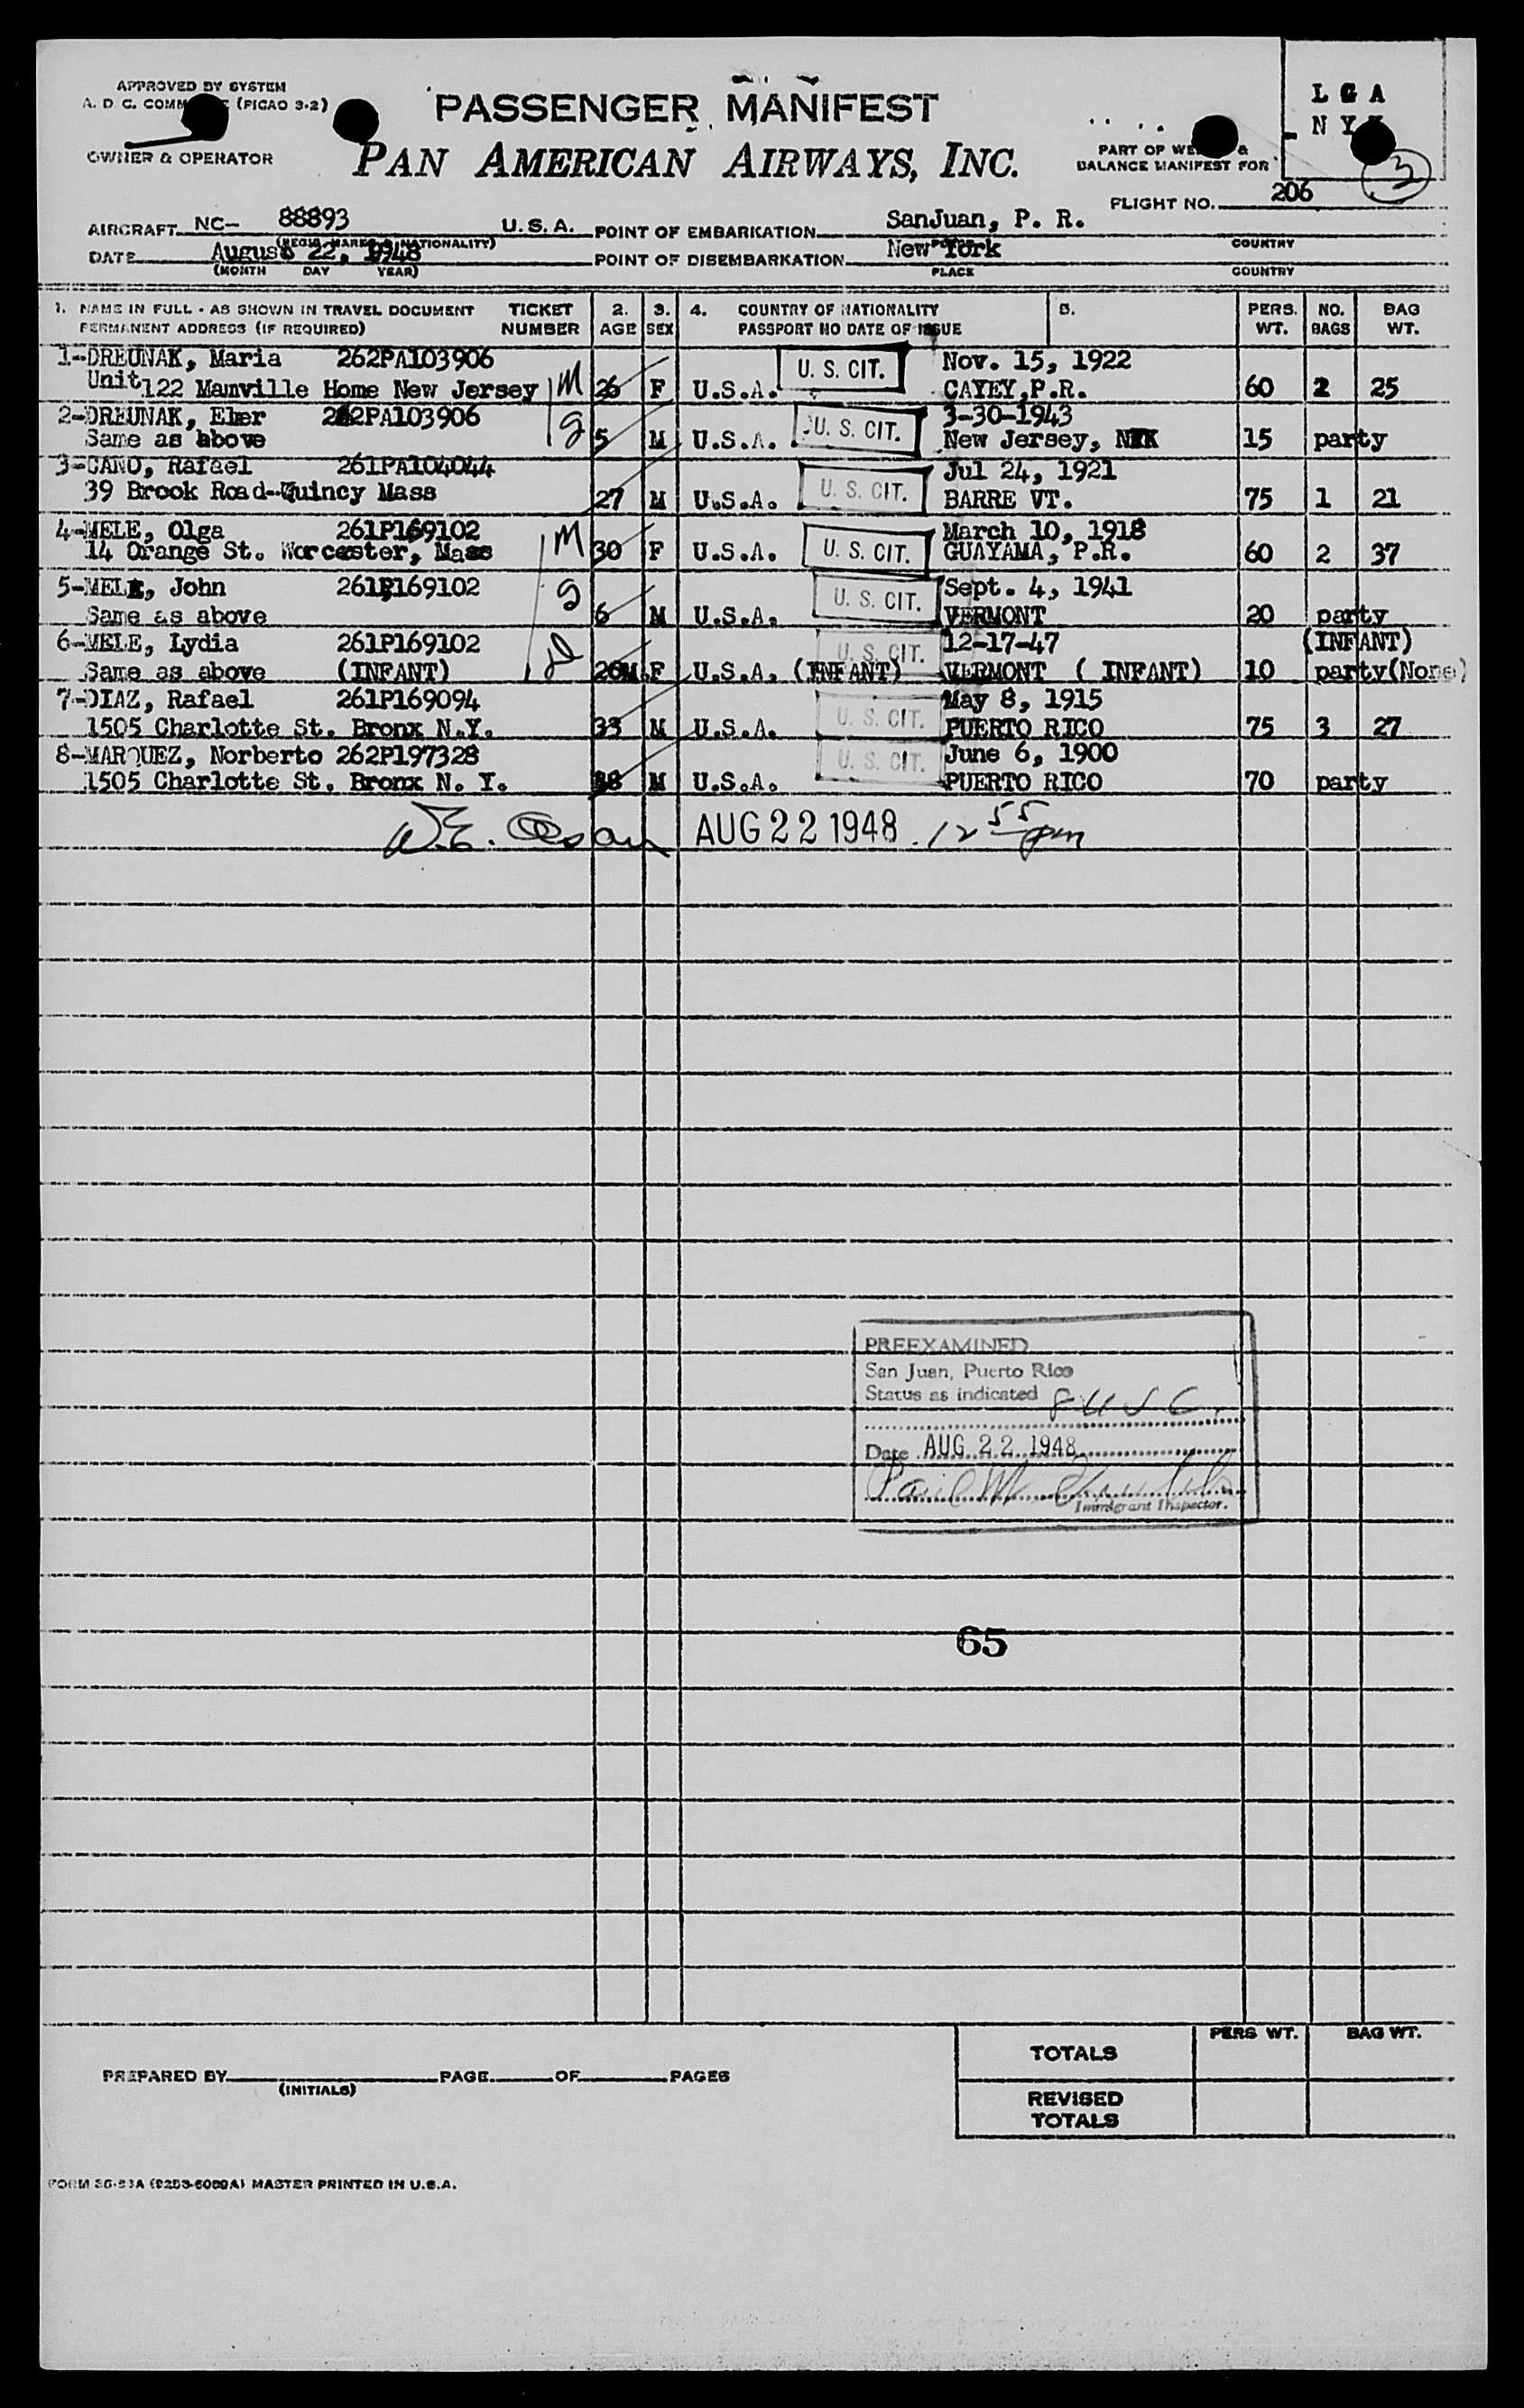 APPROVED BY SYSTEM
A. D. C. (PICAO 3-2)
OWNER & OPERATOR
PASSENGER MANIFEST
PAN AMERICAN AIRWAYS, INC.
L G A
N Y
3
PART OF &
BALANCE MANIFEST FOR
FLIGHT NO. 206
AIRCRAFT NC- 88893 U.S.A. POINT OF EMBARKATION SanJuan, P. R.
(REGIS. MARKS & NATIONALITY) PLACE COUNTRY
DATE August 22, 1948 POINT OF DISEMBARKATION New York
(MONTH DAY YEAR) PLACE COUNTRY
1. NAME IN FULL - AS SHOWN IN TRAVEL DOCUMENT TICKET 2. 3. 4. COUNTRY OF NATIONALITY 5. PERS. NO. BAG
PERMANENT ADDRESS (IF REQUIRED) NUMBER AGE SEX PASSPORT NO DATE OF ISSUE WT. BAGS WT.
1-DREUNAK, Maria 262PA103906 U. S. CIT. Nov. 15, 1922
Unit122 Manville Home New Jersey M 26 F U.S.A. CAYEY,P.R. 60 2 25
2-DREUNAK, Elmer 262PA103906 U. S. CIT. 3-30-1943
Same as above 5 M U.S.A. New Jersey, 15 party
3-CANO, Rafael 261PA104044 U. S. CIT. Jul 24, 1921
39 Brook Road--Quincy Mass 27 M U.S.A. BARRE VT. 75 1 21
4-MELE, Olga 261P169102 March 10, 1918
14 Orange St. Worcester, Mass M 30 F U.S.A. U. S. CIT. GUAYAMA, P.R. 60 2 37
5-MELE, John 261P169102 U. S. CIT. Sept. 4, 1941
Same as above 6 M U.S.A. VERMONT 20 party
6-MELE, Lydia 261P169102 U. S. CIT. 12-17-47 (INFANT)
Same as above (INFANT) F U.S.A. (INFANT) VERMONT ( INFANT) 10 party(None)
7-DIAZ, Rafael 261P169094 U. S. CIT. May 8, 1915
1505 Charlotte St. Bronx N.Y. 33 M U.S.A. PUERTO RICO 75 3 27
8-MARQUEZ, Norberto 262P197328 U. S. CIT. June 6, 1900
1505 Charlotte St. Bronx N. Y. M U.S.A. PUERTO RICO 70 party
W.E. AUG 22 1948 12 55 pm
PREEXAMINED
San Juan, Puerto Rico
Status as indicated 8 U S C.
Date AUG 22 1948
Paul
Immigrant Inspector.
65
PERS WT. BAG WT.
TOTALS
PREPARED BY PAGE OF PAGES
(INITIALS)
REVISED
TOTALS
MASTER PRINTED IN U.S.A.